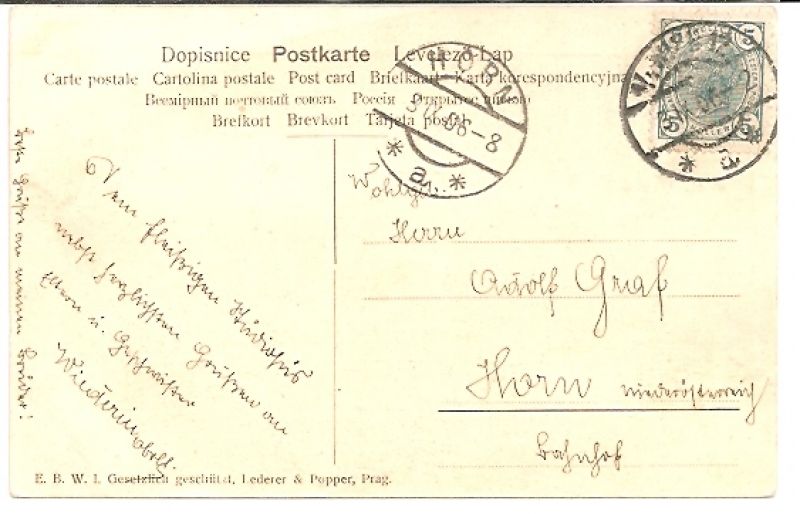 Dopisnice Postkarte Levelező-Lap
Carte postale Cartolina postale Post card Briefkaart Karta korespondencyjna
Всемірный почтовый союзъ Россія Открытое письмо
Brefkort Brevkort Tarjeta postal
HORN
9.V.06-8
* a *
5
Wohlgeb.
Herrn
Adolf Graf
Horn Niederösterreich
Bahnhof
Dem fleißigen Studiosus
nebst herzlichsten Grüßen an
Eltern u. Geschwister
Grüße an meinen Bruder!
E. B. W. I. Gesetzlich geschützt, Lederer & Popper, Prag.